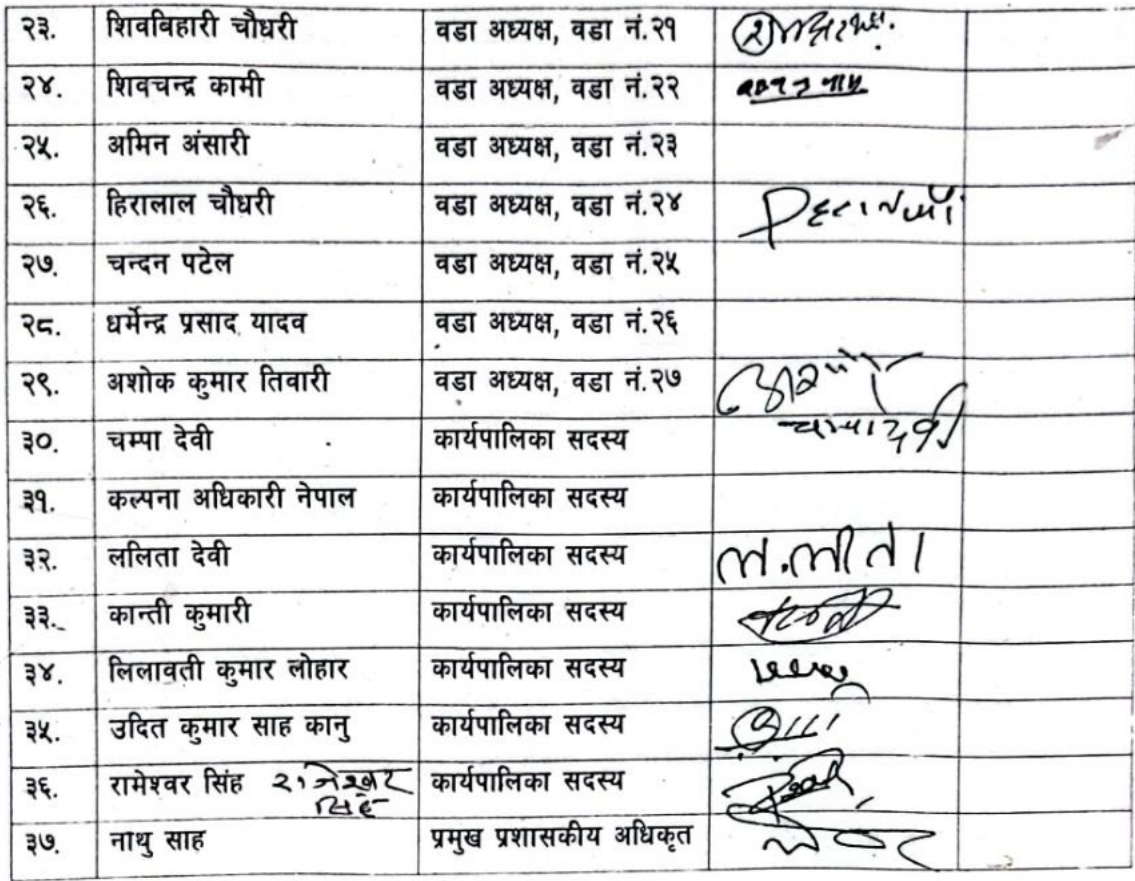 २३. शिवबिहारी चौधरी वडा अध्यक्ष, वडा नं.२१
२४. शिवचन्द्र कामी वडा अध्यक्ष, वडा नं.२२
२५. अमिन अंसारी वडा अध्यक्ष, वडा नं.२३
२६. हिरालाल चौधरी वडा अध्यक्ष, वडा नं.२४
२७. चन्दन पटेल वडा अध्यक्ष, वडा नं.२५
२८. धर्मेन्द्र प्रसाद यादव वडा अध्यक्ष, वडा नं.२६
२९. अशोक कुमार तिवारी वडा अध्यक्ष, वडा नं.२७
३०. चम्पा देवी कार्यपालिका सदस्य चम्पा देवी
३१. कल्पना अधिकारी नेपाल कार्यपालिका सदस्य
३२. ललिता देवी कार्यपालिका सदस्य ल.लीता
३३. कान्ती कुमारी कार्यपालिका सदस्य
३४. लिलावती कुमार लोहार कार्यपालिका सदस्य
३५. उदित कुमार साह कानु कार्यपालिका सदस्य
३६. रामेश्वर सिंह राजेश्वर कार्यपालिका सदस्य
सिंह
३७. नाथु साह प्रमुख प्रशासकीय अधिकृत